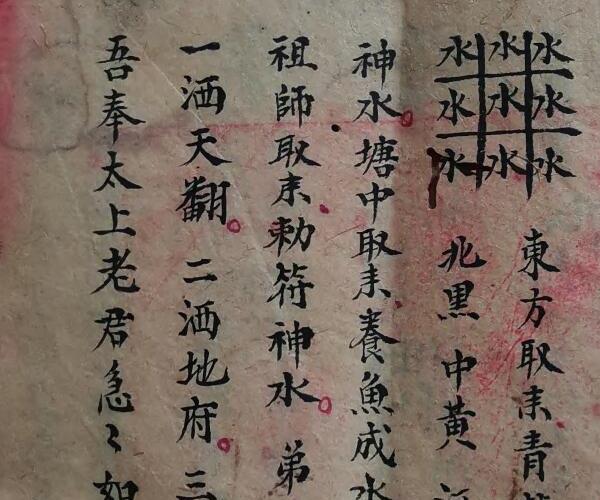 水水水
水水水
水水水
東方取来青
北黒 中黄
神水。塘中取来養魚成水
祖師取来勅符神水。弟
一洒天翻。二洒地府。三
吾奉太上老君急〻如